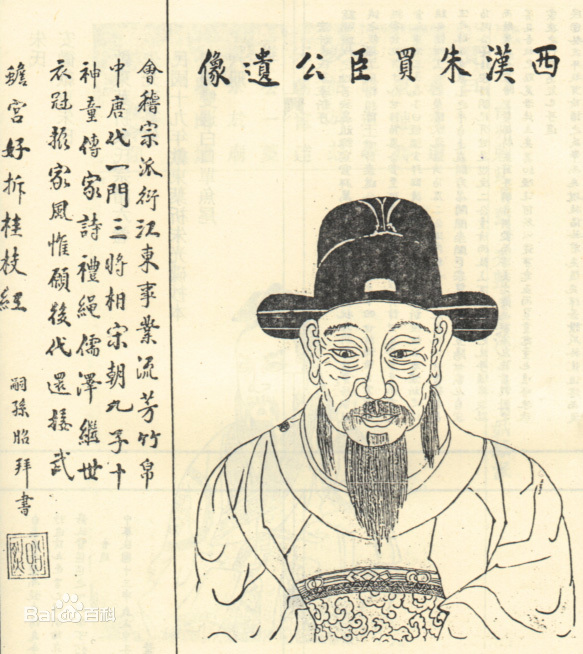 西漢朱買臣公遺像
會稽宗派衍江東事業流芳竹帛
中唐代一門三將相宋朝九子十
神童傳家詩禮繩儒澤繼世
衣冠振家風惟願後代還接武
蟾宮好拆桂枝紅
嗣孫昭拜書
Baidu百科